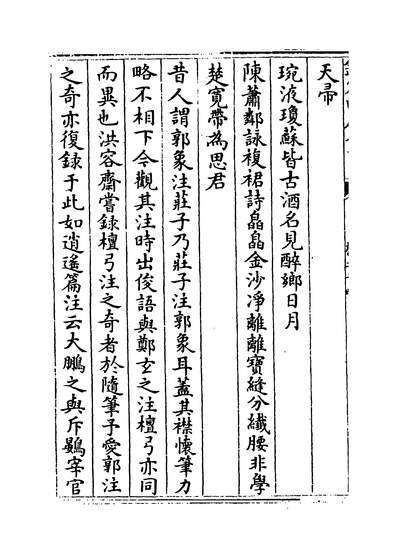 天帚
琬液瓊蘇皆古酒名見醉鄉日月
陳蕭鄰詠複裙詩皛皛金沙淨離離寶縫分纖腰非學
楚寛帶為思君
昔人謂郭象注莊子乃莊子注郭象耳蓋其襟懷筆力
略不相下今觀其注時出俊語與鄭玄之注檀弓亦同
而異也洪容齋嘗録檀弓注之奇者於隨筆予愛郭注
之奇亦復録于此如逍遙篇注云大鵬之與斥鷃宰官